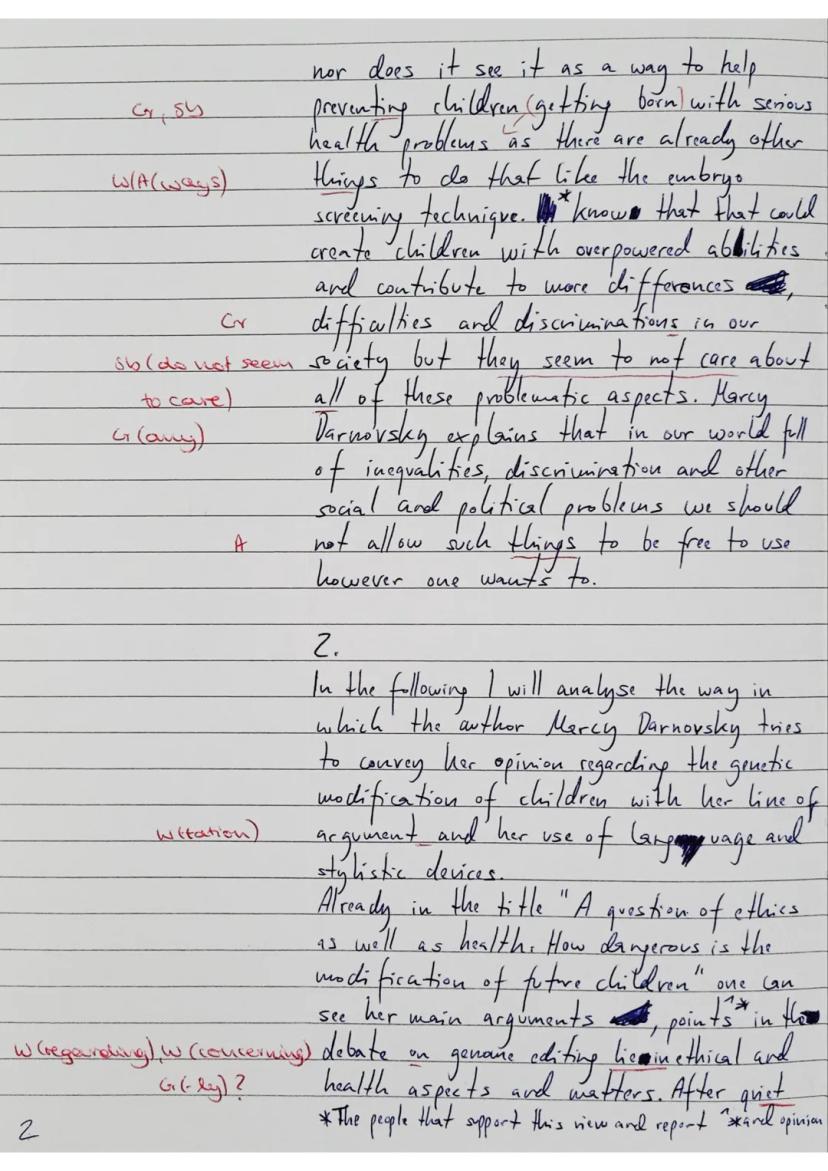 nor does it see it as a way to help
Gr, Sb preventing children (getting born) with serious
health problems as there are already other
W/A(ways) things to do that like the embryo
screening technique. * know that that could
create children with overpowered abilities
and contribute to more differences ,
Gr difficulties and discriminations in our
Sb (do not seem society but they seem to not care about
to care) all of these problematic aspects. Marcy
G (any) Darnovsky explains that in our world full
of inequalities, discrimination and other
social and political problems we should
A not allow such things to be free to use
however one wants to.
2.
In the following I will analyse the way in
which the author Marcy Darnovsky tries
to convey her opinion regarding the genetic
modification of children with her line of
W(tation) argument and her use of language and
stylistic devices.
Already in the title "A question of ethics
as well as health. How dangerous is the
modification of future children" one can
see her main arguments , points ** in the
W (regarding), W (concerning) debate on genome editing lie in ethical and
G(-ly)? health aspects and matters. After quiet
*The people that support this view and report **and opinion
2